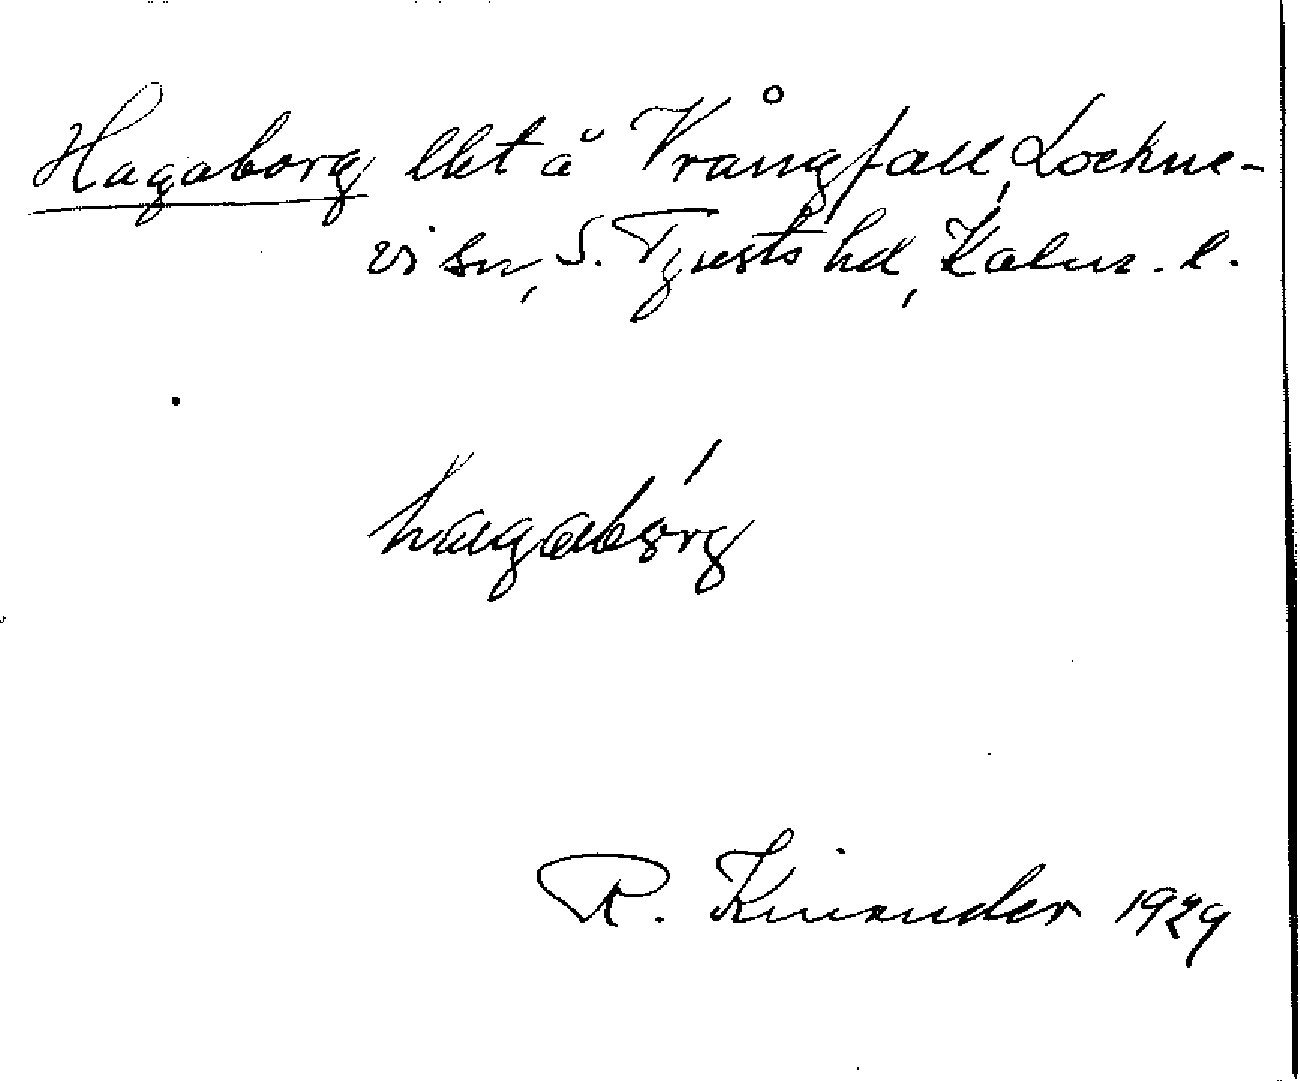 Hagaborg lht å Vrångfall, Lockne-
vi sn, S. Tjusts hd, Kalm. l.
hagabórg
R. Kinander 1929